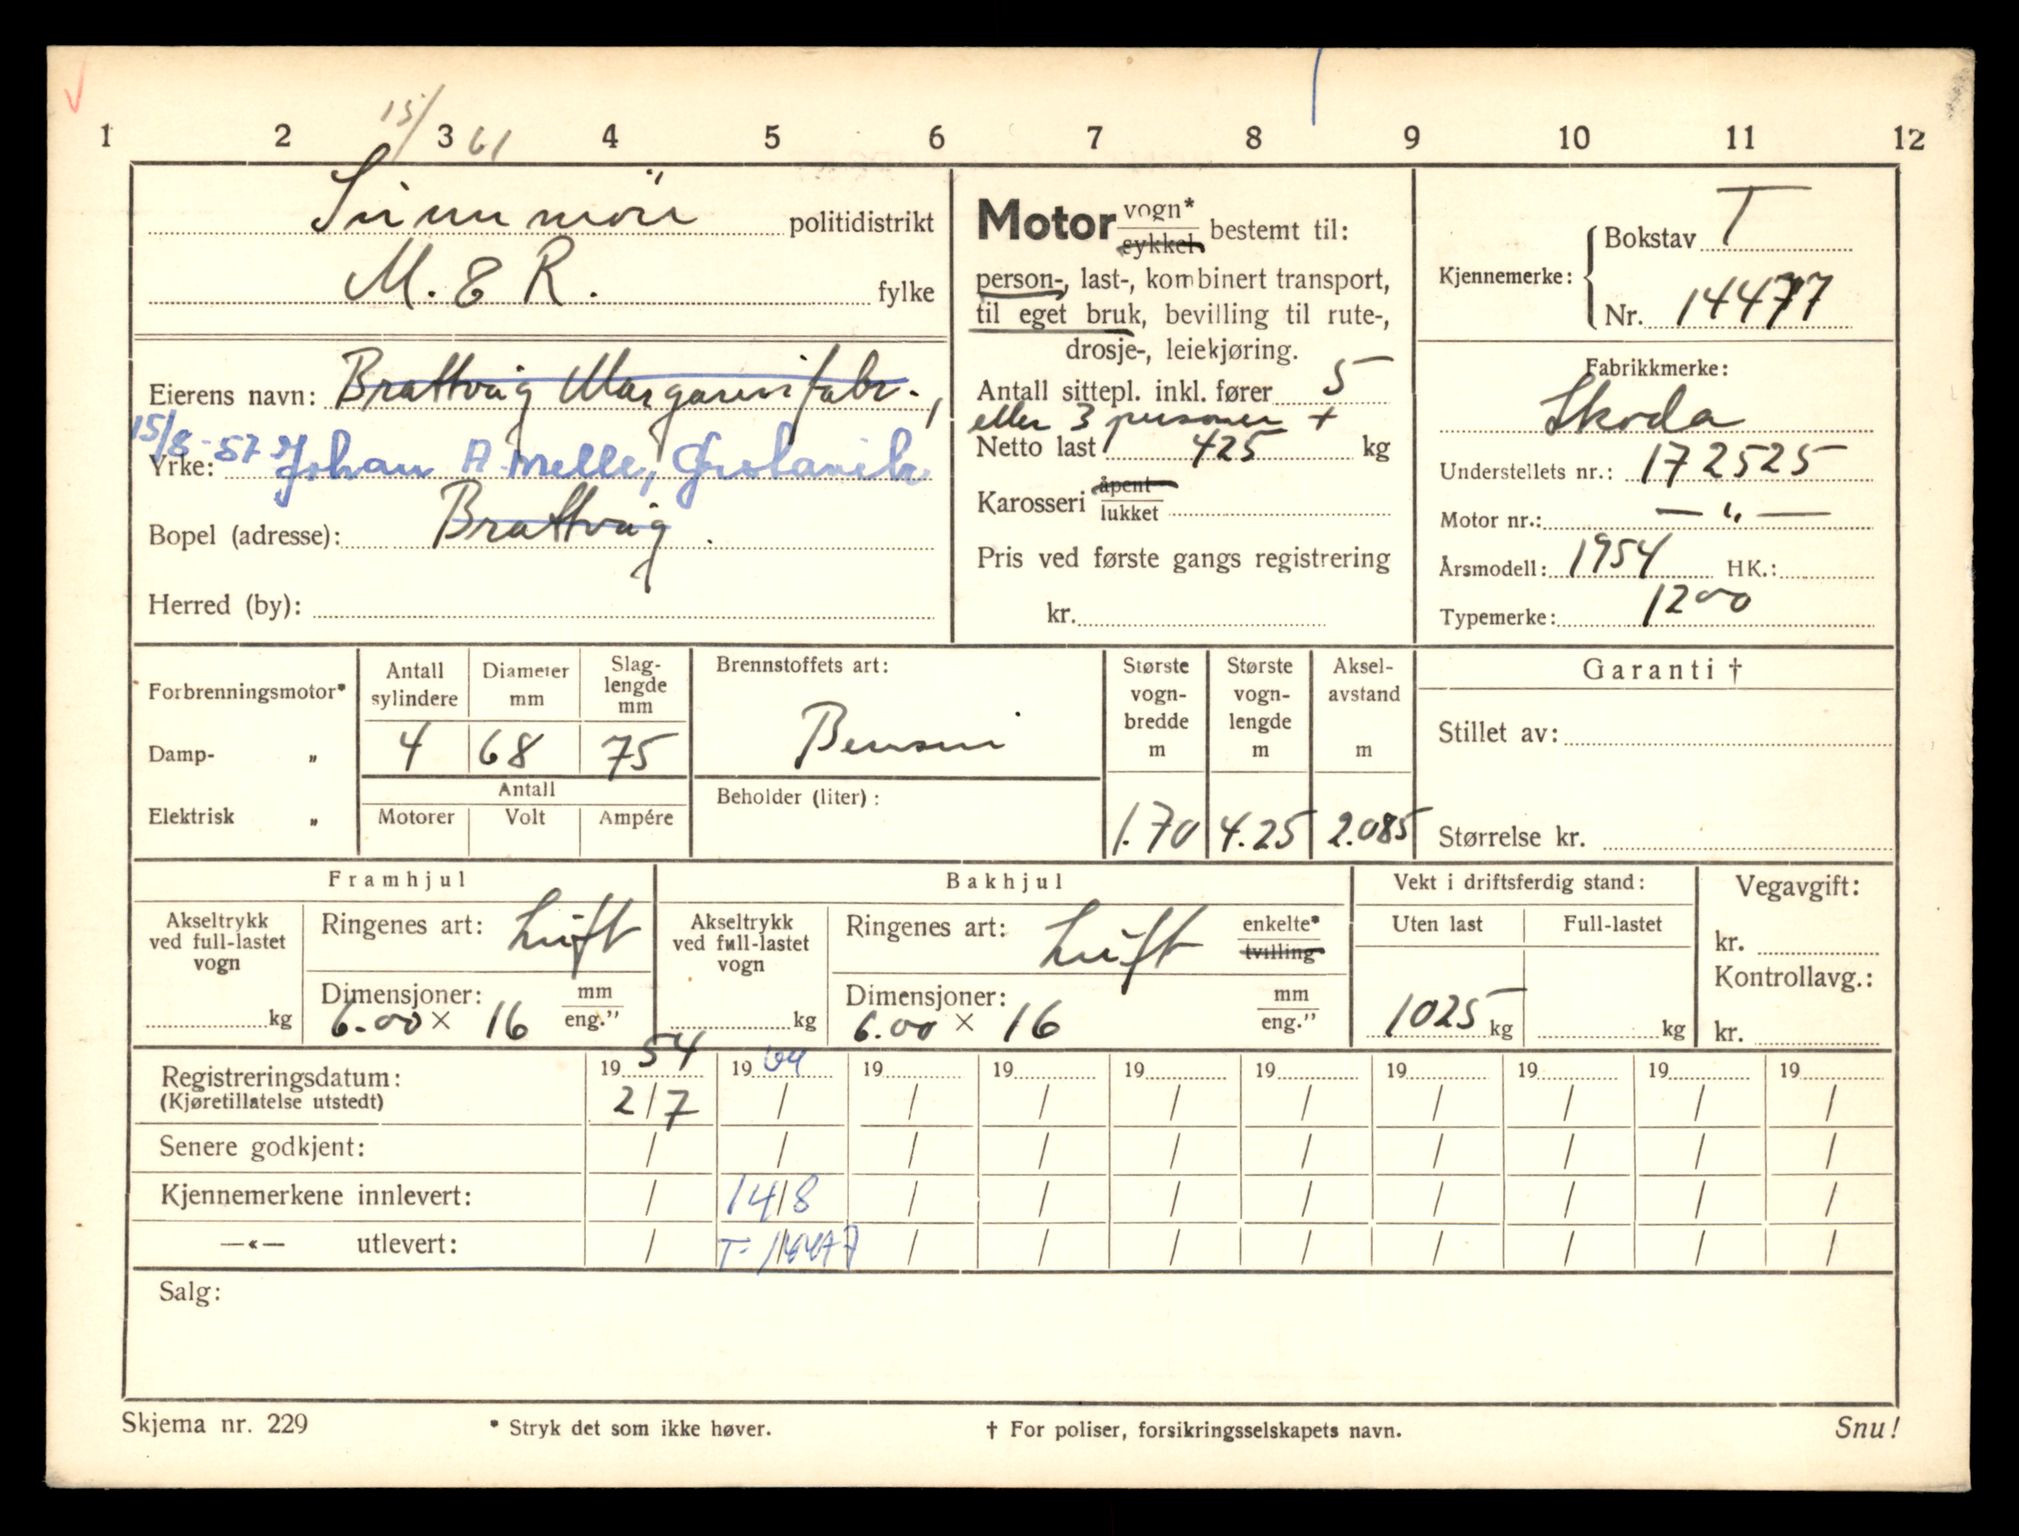 15/ 61
1 2 3 4 5 6 7 8 9 10 11 12
Sunnmör politidistrikt
M. & R. fylke
Eierens navn: Brattvåg Margarinfabr.,
15/8-57 Johan A. Melle,
Yrke:
Bopel (adresse): Brattvåg.
Herred (by):
Motor vogn* sykkel bestemt til:
person-, last-, kombinert transport,
til eget bruk, bevilling til rute-,
drosje-, leiekjøring.
Antall sittepl. inkl. fører 5
eller 3 personer +
Netto last 425 kg
Karosseri åpent lukket
Pris ved første gangs registrering
kr.
Kjennemerke: Bokstav T
Nr. 14477
Fabrikkmerke:
Skoda
Understellets nr.: 172525
Motor nr.: — " —
Årsmodell: 1954 HK.:
Typemerke: 1200
Forbrenningsmotor*
Damp- „
Elektrisk „
Antall sylindere Diameter mm Slag-lengde mm
4 68 75
Antall
Motorer Volt Ampére
Brennstoffets art:
Bensin
Beholder (liter):
Største vogn-bredde m Største vogn-lengde m Aksel-avstand m
1.70 4.25 2.085
Garanti †
Stillet av:
Størrelse kr.
Framhjul
Akseltrykk ved full-lastet vogn
kg
Ringenes art: Luft
Dimensjoner: mm
6.00 × 16 eng."
Bakhjul
Akseltrykk ved full-lastet vogn
kg
Ringenes art: Luft enkelte* tvilling
Dimensjoner: mm
6.00 × 16 eng."
Vekt i driftsferdig stand:
Uten last Full-lastet
1025 kg kg
Vegavgift:
kr.
Kontrollavg.:
kr.
Registreringsdatum: 1954 1964 19 19 19 19 19 19 19 19
(Kjøretillatelse utstedt) 2/7 / / / / / / / / /
Senere godkjent: / / / / / / / / / /
Kjennemerkene innlevert: / 14/8 / / / / / / / /
—«— utlevert: / T-14477 / / / / / / / /
Salg:
Skjema nr. 229 * Stryk det som ikke høver. † For poliser, forsikringsselskapets navn. Snu!